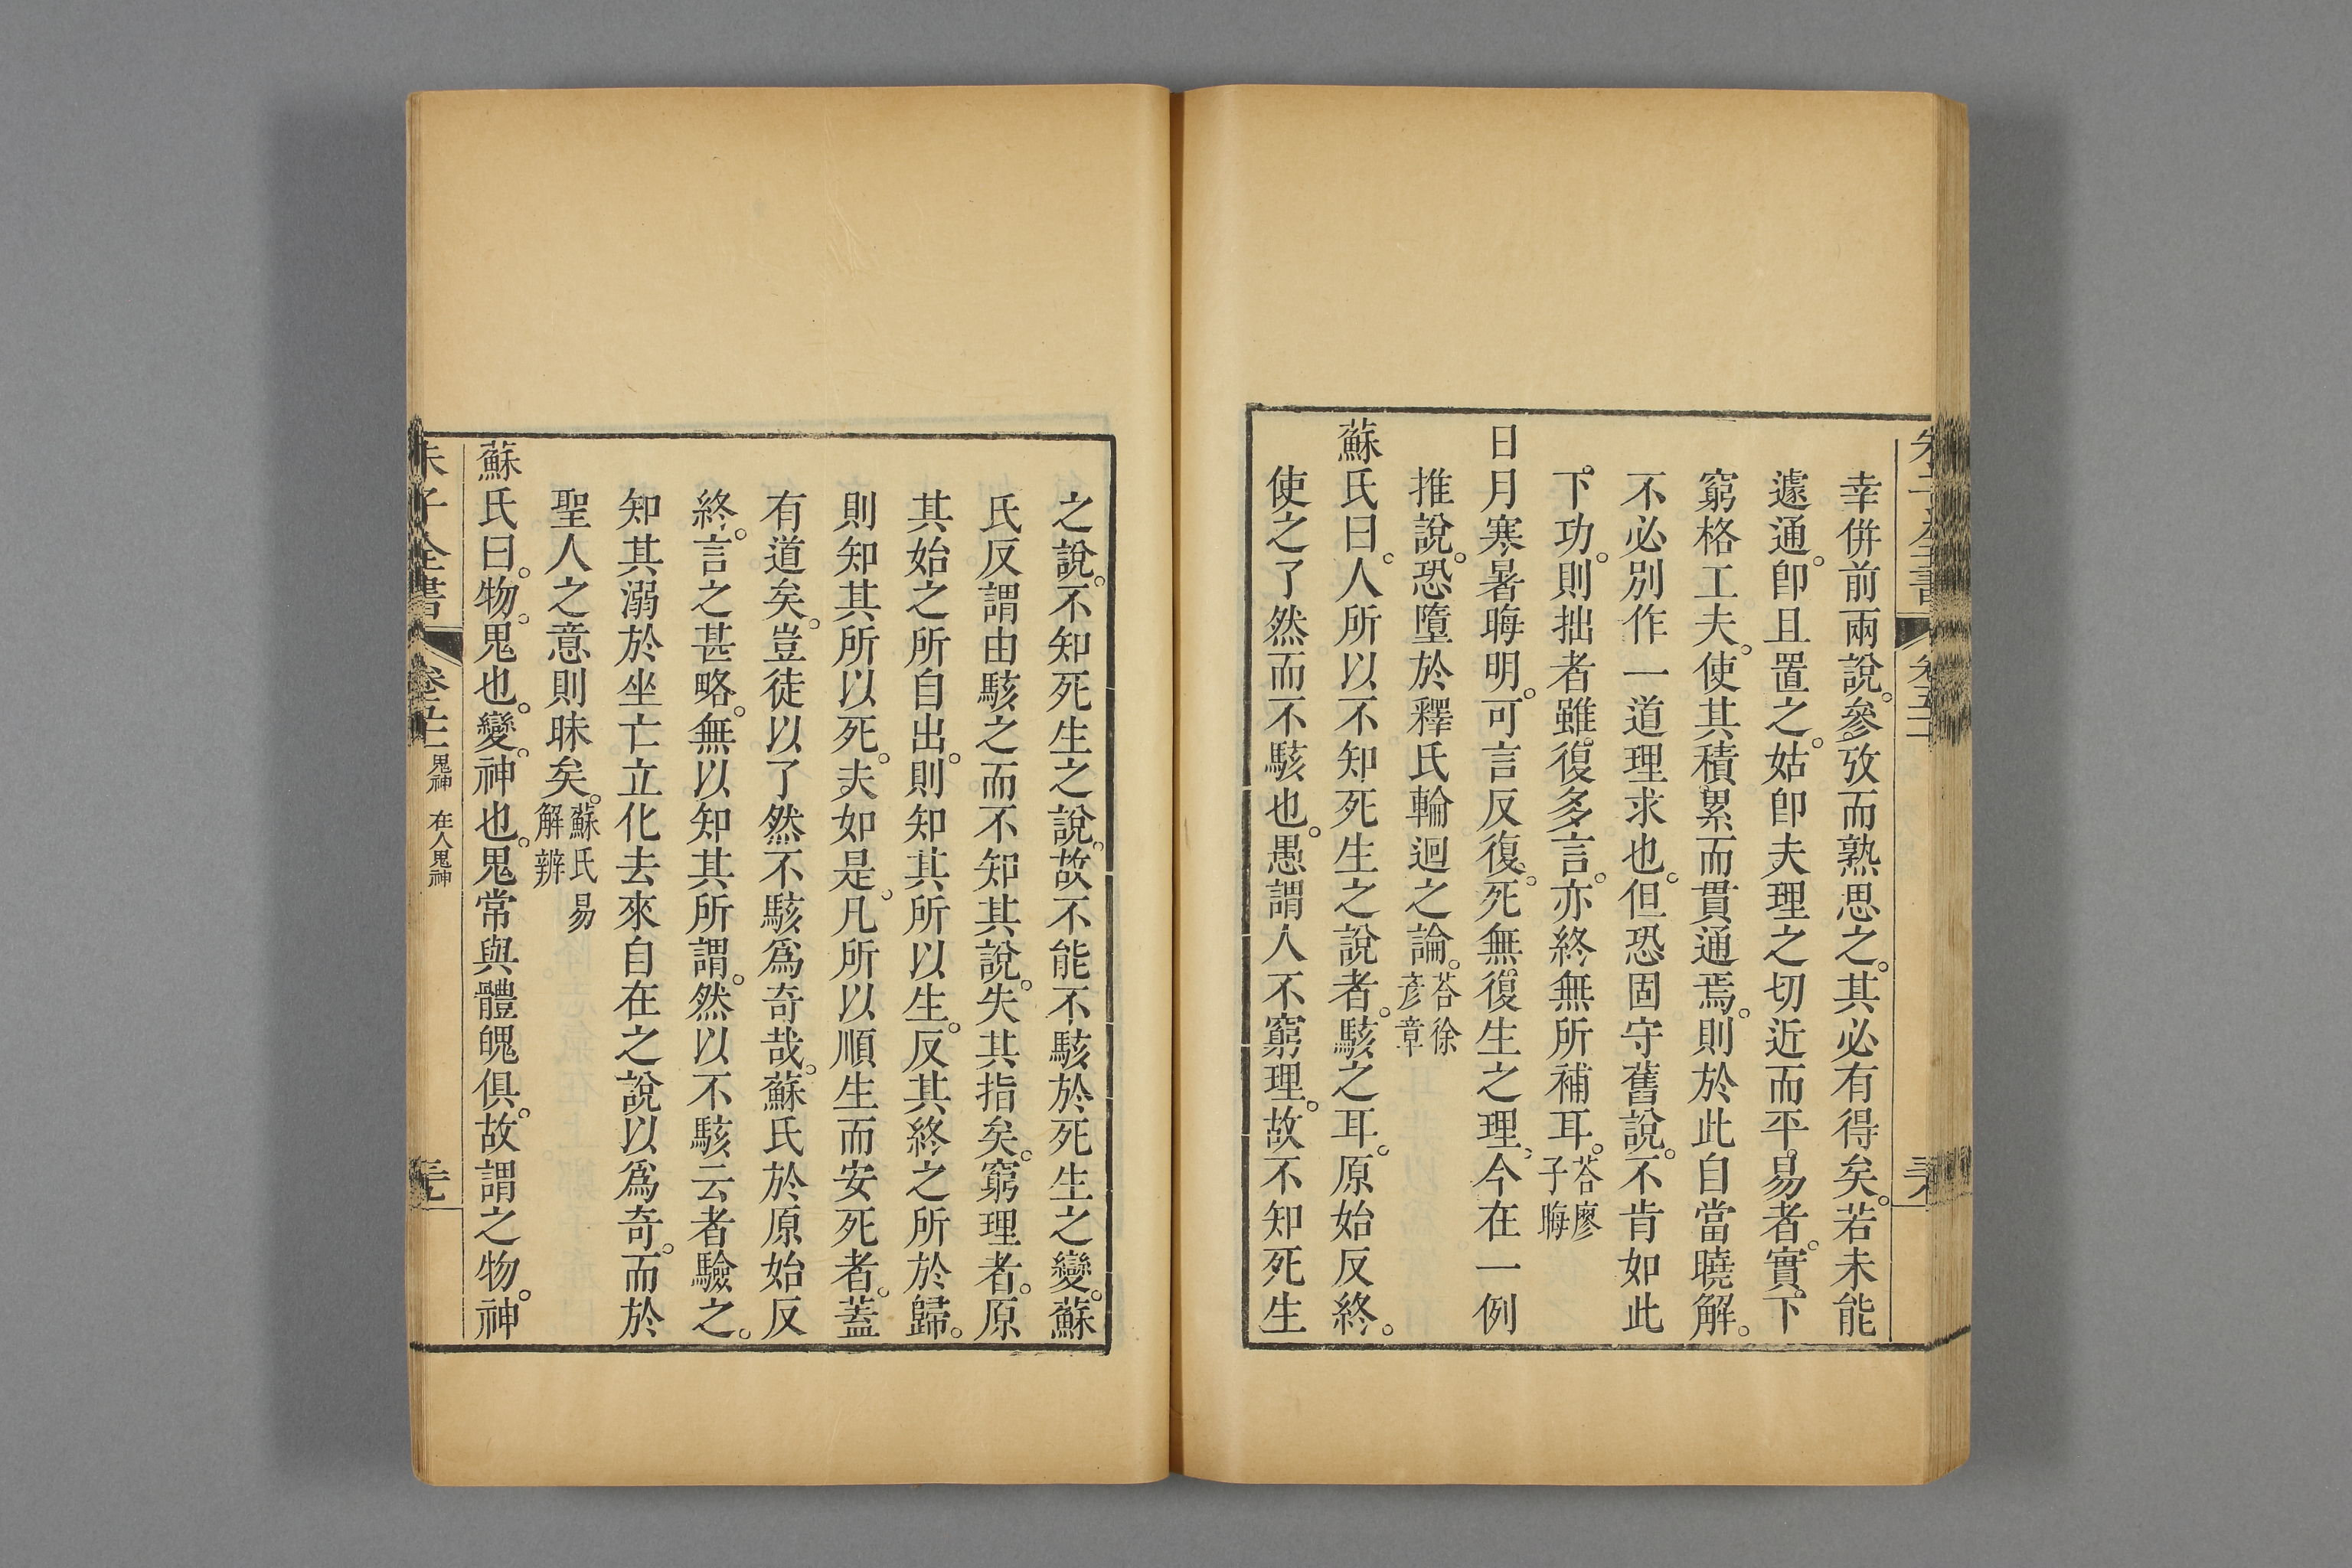 幸併前兩說。參攷而熟思之。其必有得矣。若未能
遽通。卽且置之。姑卽夫理之切近而平易者。實下
窮格工夫。使其積累而貫通焉。則於此自當曉解。
不必別作一道理求也。但恐固守舊說。不肯如此
下功。則拙者雖復多言。亦終無所補耳。荅廖子晦
日月寒暑晦明。可言反復。死無復生之理。今在一例
推說。恐墮於釋氏輪迴之論。荅徐彥章
蘇氏曰。人所以不知死生之說者。駭之耳。原始反終。
使之了然而不駭也。愚謂人不窮理。故不知死生
之說。不知死生之說。故不能不駭於死生之變。蘇
氏反謂由駭之而不知其說。失其指矣。窮理者。原
其始之所自出。則知其所以生。反其終之所於歸。
則知其所以死。夫如是。凡所以順生而安死者。蓋
有道矣。豈徒以了然不駭爲奇哉。蘇氏於原始反
終。言之甚略。無以知其所謂。然以不駭云者驗之。
知其溺於坐亡立化去來自在之說以爲奇。而於
聖人之意則昧矣。蘇氏易解辨
蘇氏曰。物。鬼也。變。神也。鬼常與體魄俱。故謂之物。神
朱子全書 鬼神 在人鬼神